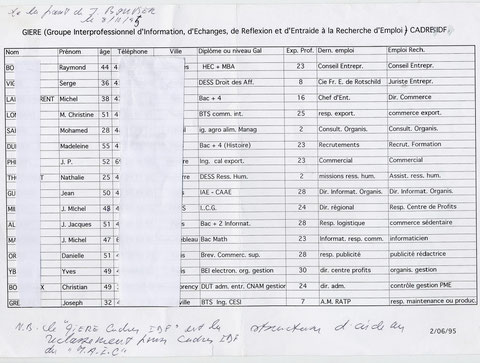 GIERE (Groupe Interprofessionnel d'Information, d'Echanges, de Reflexion et d'Entraide à la Recherche d'Emploi) CADRES IDF
Nom Prénom âge Téléphone Ville Diplôme ou niveau Gal Exp. Prof. Dern. emploi Emploi Rech.
BO Raymond 44 4 HEC + MBA 23 Conseil Entrepr. Conseil Entrepr.
VIC Serge 36 4 DESS Droit des Aff. 8 Cie Fr. E. de Rotschild Juriste Entrepr.
LAU RENT Michel 38 4 Bac + 4 16 Chef d'Ent. Dir. Commerce
LON M. Christine 51 4 BTS comm. int. 25 resp. export commerce export.
SAI Mohamed 28 4 ig. agro alim. Manag 2 Consult. Organis. Consult. Organis.
DU Madeleine 55 4 Bac + 4 (Histoire) 23 Recrutements Recrut. Formation
PH J. P. 52 69 Ing. cal export. 23 Commercial Commercial
THI T Nathalie 25 4 DESS Ress. Hum. 2 missions ress. hum. Assist. ress. hum.
GU Jean 50 4 IAE - CAAE 28 Dir. Informat. Organis. Dir. Informat. Organis.
MI J. Michel 48 4 I.C.G. 24 Dir. régional Resp. Centre de Profits
AL J. Jacques 51 4 Bac + 2 Informat. 28 Resp. logistique commerce sédentaire
MA J. Michel 47 6 ebleau Bac Math 23 Informat. resp. comm. informaticien
OR Danielle 51 Brev. Commerc. sup. 28 resp. publicité publicité rédactrice
YB Yves 49 BEI electron. org. gestion 30 dir. centre profits organis. gestion
BO X Christian 49 orency DUT adm. entr. CNAM gestion 24 dir. adm. contrôle gestion PME
GRE Joseph 32 ville BTS Ing. CESI 7 A.M. RATP resp. maintenance ou produc.
N.B. le "GIERE Cadres IDF" est la structure d'aide au
reclassement pour Cadres IDF
2/06/95